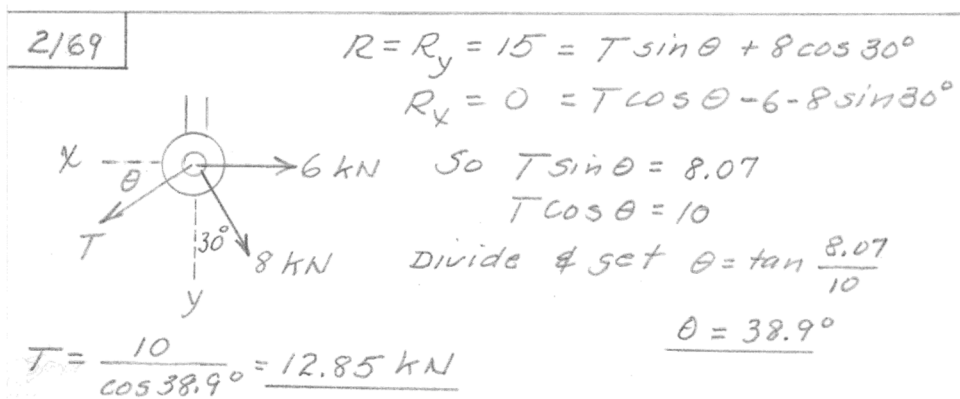 2/69
R = R_y = 15 = T sin θ + 8 cos 30°
R_x = 0 = T cos θ - 6 - 8 sin 30°
x
θ
6 kN
T
30°
8 kN
y
So T sin θ = 8.07
T cos θ = 10
Divide & get θ = tan 8.07/10
θ = 38.9°
T = 10/cos 38.9° = 12.85 kN